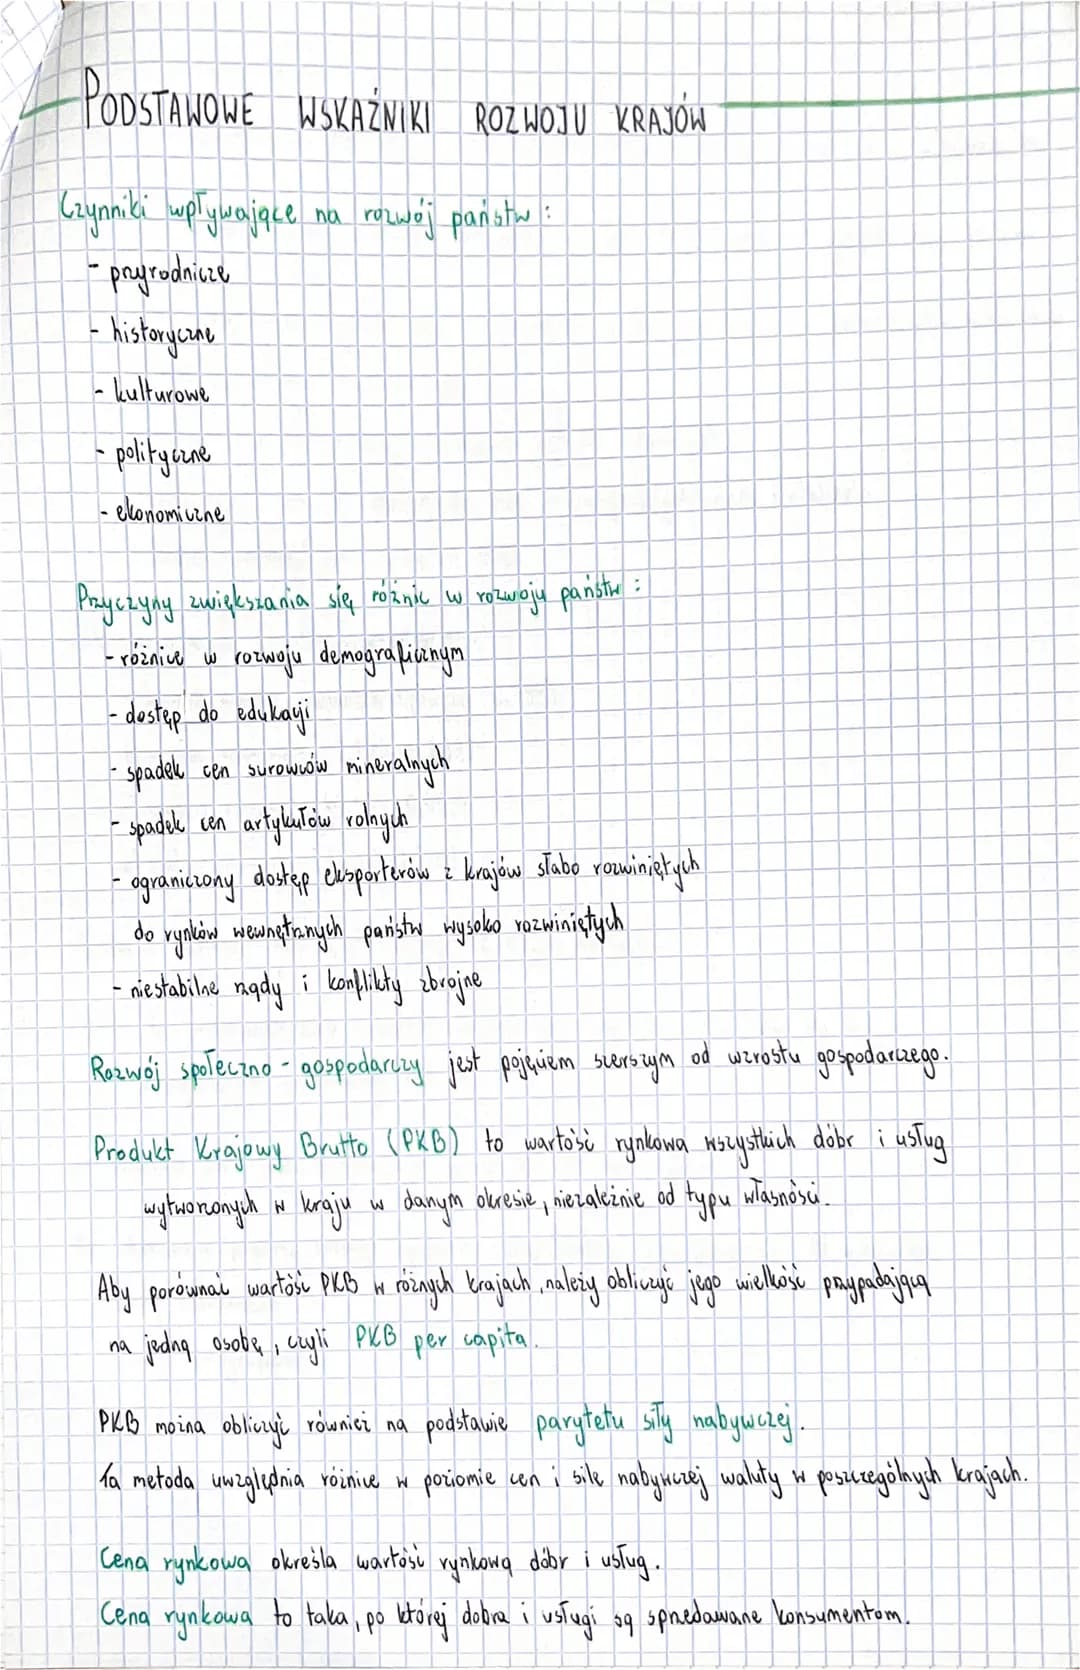 PODSTAWOWE WSKAŹNIKI ROZWOJU KRAJÓW
Czynniki wpływające na rozwój państw:
- przyrodnicze
- historyczne
- kulturowe
- polityczne
- ekonomiczne
Przyczyny zwiększania się różnic w rozwoju państw:
- różnice w rozwoju demograficznym
- dostęp do edukacji
- spadek cen surowców mineralnych
- spadek cen artykułów rolnych
- ograniczony dostęp eksporterów z krajów słabo rozwiniętych
do rynków wewnętrznych państw wysoko rozwiniętych
- niestabilne rządy i konflikty zbrojne
Rozwój społeczno-gospodarczy jest pojęciem szerszym od wzrostu gospodarczego.
Produkt Krajowy Brutto (PKB) to wartość rynkowa wszystkich dóbr i usług
wytworzonych w kraju w danym okresie, niezależnie od typu własności.
Aby porównać wartość PKB w różnych krajach, należy obliczyć jego wielkość przypadającą
na jedną osobę, czyli PKB per capita.
PKB można obliczyć również na podstawie parytetu siły nabywczej.
Ta metoda uwzględnia różnice w poziomie cen i sile nabywczej waluty w poszczególnych krajach.
Cena rynkowa określa wartość rynkową dóbr i usług.
Cena rynkowa to taka, po której dobra i usługi są sprzedawane konsumentom.